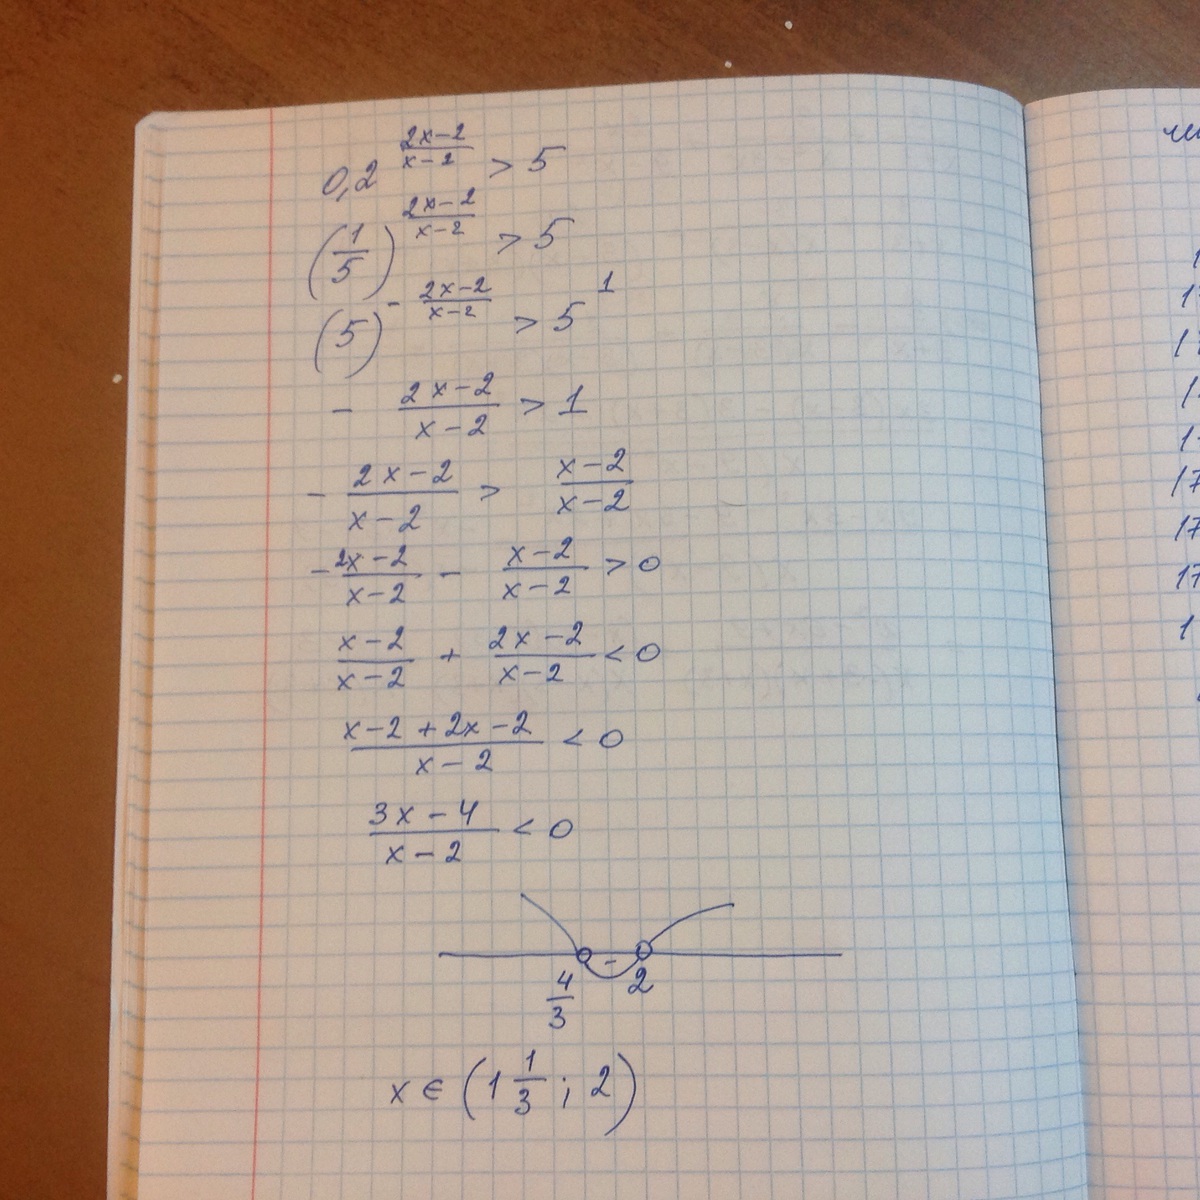 0,2^((2x-2)/(x-2)) > 5
(1/5)^((2x-2)/(x-2)) > 5
(5)^(-(2x-2)/(x-2)) > 5^1
- (2x-2)/(x-2) > 1
- (2x-2)/(x-2) > (x-2)/(x-2)
- (2x-2)/(x-2) - (x-2)/(x-2) > 0
(x-2)/(x-2) + (2x-2)/(x-2) < 0
(x-2+2x-2)/(x-2) < 0
(3x-4)/(x-2) < 0
-
4/3 2
x ∈ (1 1/3 ; 2)